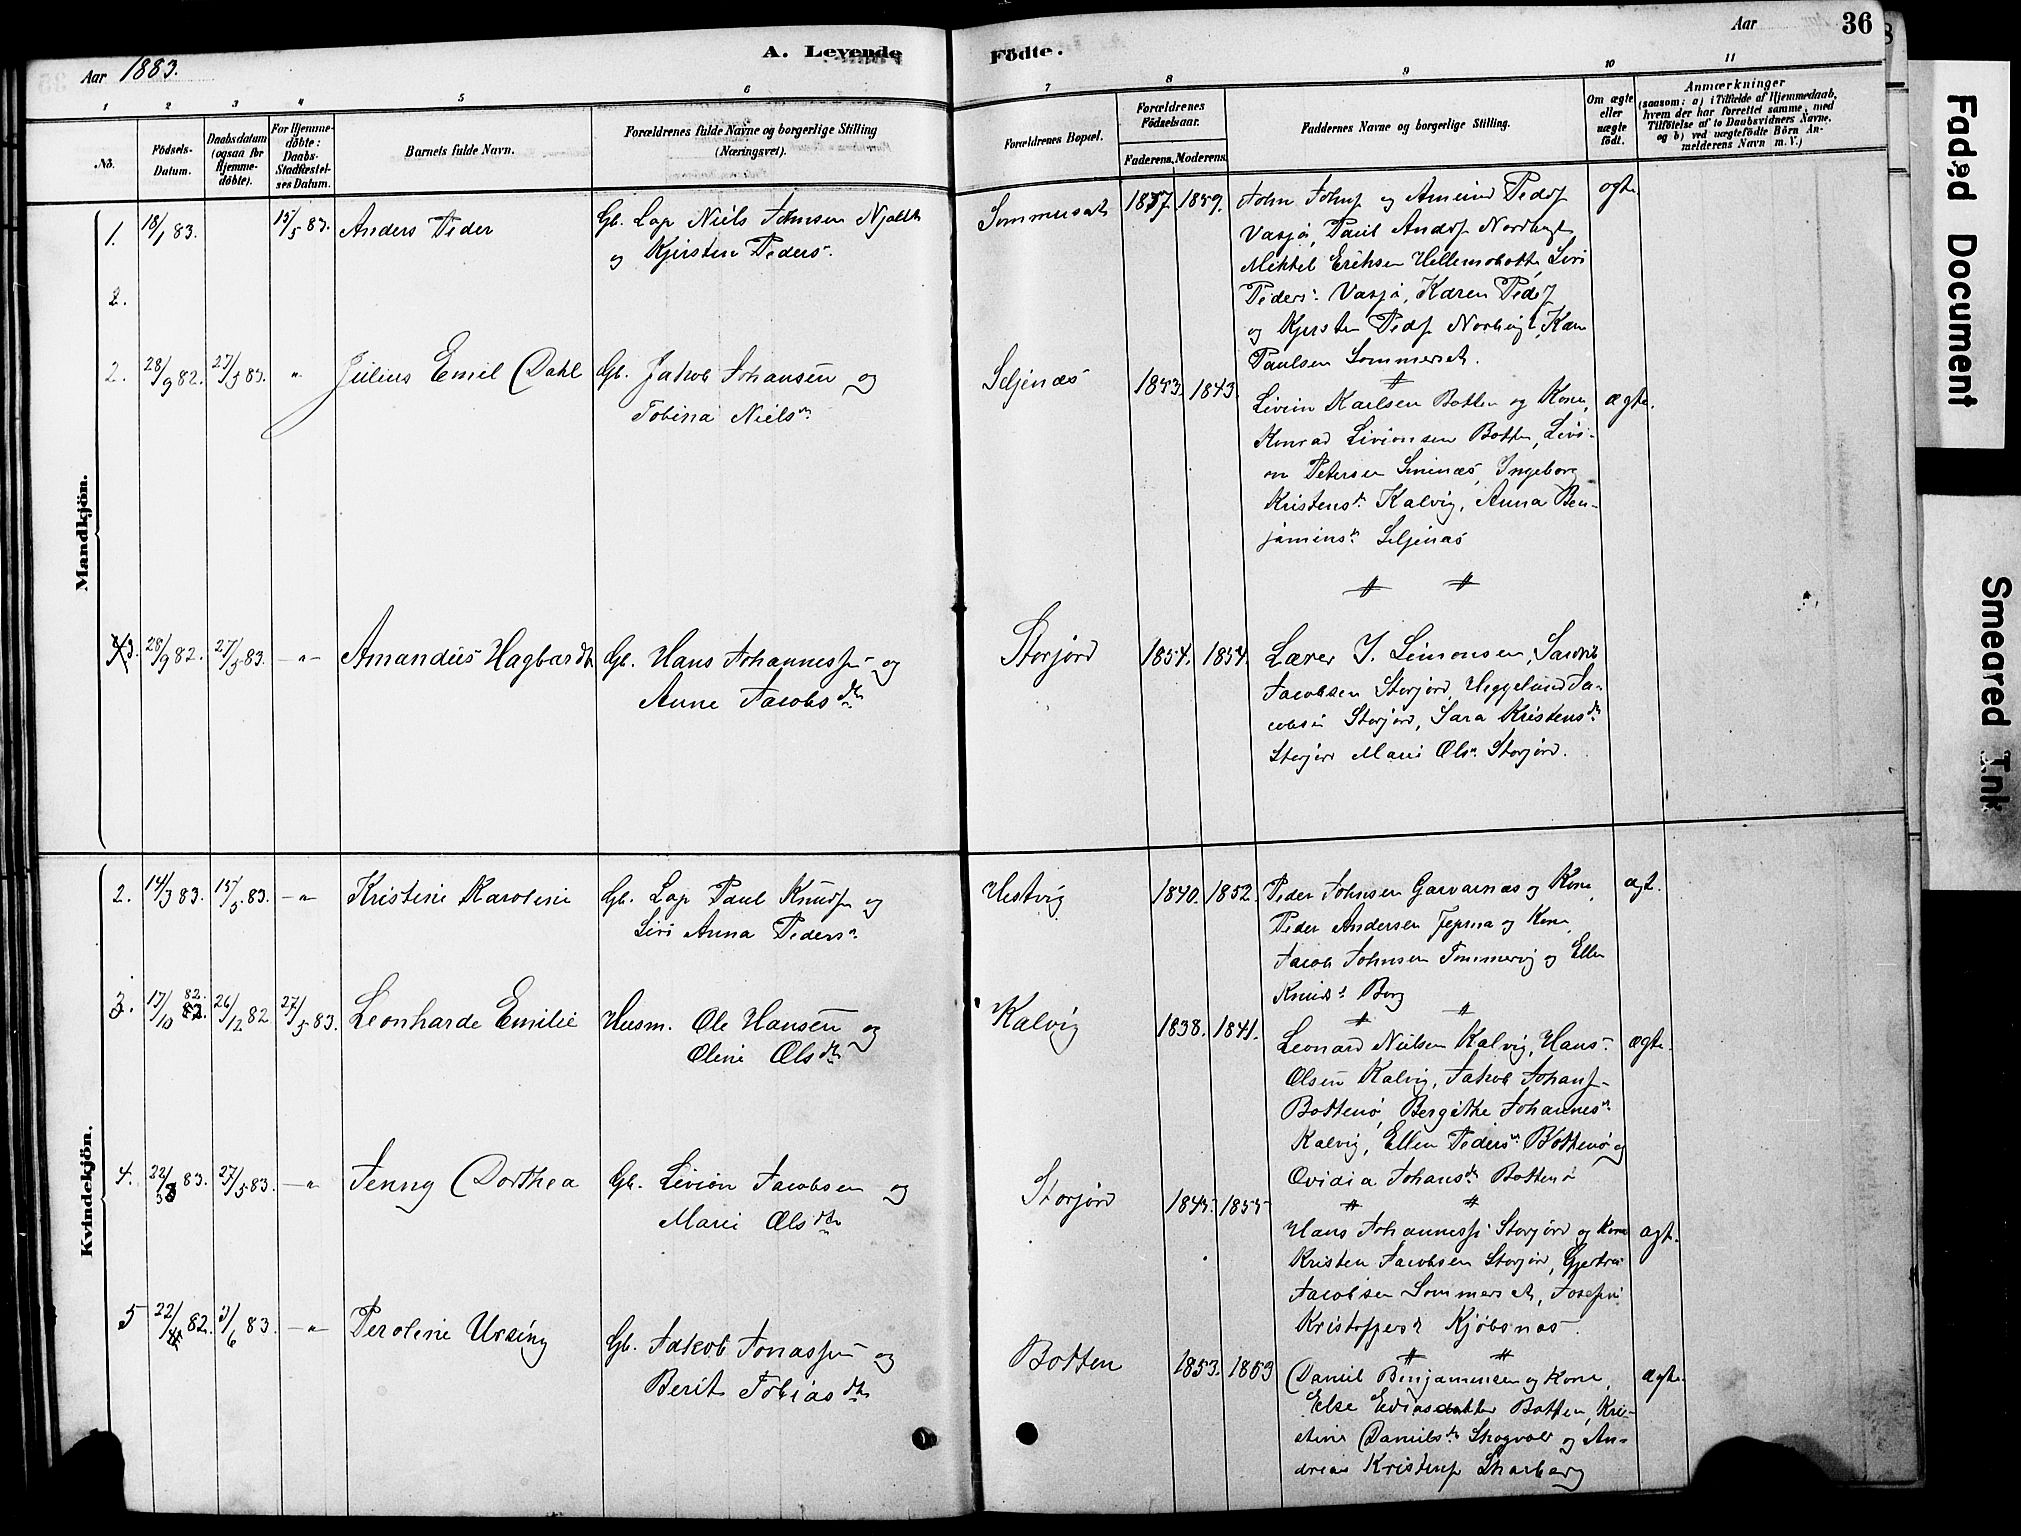 Aar 1883.
A. Levende
Födte.
Aar
36
1 2 3 4 5 6 7 8 9 10 11
No.
Födsels-
Datum.
Daabsdatum
(ogsaa for
Hjemme-
döbte).
For Hjemme-
döbte:
Daabs-
Stadfæstel-
ses Datum.
Barnets fulde Navn.
Forældrenes fulde Navne og borgerlige Stilling
(Næringsvei).
Forældrenes Bopæl.
Forældrenes
Födselsaar.
Faderens. Moderens.
Faddernes Navne og borgerlige Stilling.
Om ægte
eller
uægte
födt.
Anmærkninger
(saasom: a) i Tilfælde af Hjemmedaab,
hvem der har forrettet samme, med
Tilföielse af to Daabsvidners Navne,
og b) ved uægtefödte Börn An-
melderens Navn m. V.)
Mandkjön.
1. 18/1 83. 15/5 83. Anders Peder
Gb. Lap Niels Johnsen
og Kjersten Peders.
Sommerset 1857 1859. ægte
John Johns og Amund Peders
Vasjø, Paul Anders
Mikkel Eriksen Hellemobotn, Siri
Peders. Vasjø, Karen Peders
og Kjersten Peds
Paulsen Sommerset.
2.
2. 28/9 82. 27/5 83. " Julius Emil Dahl
Gb. Jakob Johansen og
Tobina Niels dtr
Seljenæs 1853. 1843. ægte.
Livion Karlsen Botten og Kone,
Konrad Livionsen Botten, Livi-
on Petersen Ingeborg
Kristens dtr Kalvig, Anna Ben-
jamins dtr Seljenæs
3. 28/9 82. 27/5 83. " Amandus Hagbardt
Gb. Hans Johanness. og
Anne Jacobs dtr
Storjord 1854. 1854.
Lærer J. Simonsen,
Jacobsen Storjord, Heggelund Ja-
cobsen Storjord, Sara Kristens dtr
Storjord Marie Ols. Storjord.
Kvindekjön.
2. 14/3 83. 15/5 83. " Kristine Karoline
Gb. Lap Paul Knuds. og
Siri Anna Peders.
Hestvig 1840. 1852. ægt.
Peder Johnsen Garvarnæs og Kone,
Peder Andersen og Kone
Jacob Johnsen Tømmervig og Ellen
Knuds. Borg
3. 17/10 82. 26/12 82 27/5 83. Leonharde Emilie
Husm. Ole Hansen og
Oline Ols dtr
Kalvig 1838. 1841. ægte.
Leonard Nielsen Kalvig, Hans
Olsen Kalvig, Jakob Johans.
Bottenø, Bergithe Johannes.
Kalvig, Ellen Peders. Bottenø og
Ovidia Johans dtr Bottenø
4. 22/3 83. 27/5 83. " Jenny Dorthea
Gb. Livion Jacobsen og
Marie Ols dtr
Storjord 1845. 1855 ægt.
Hans Johanness. Storjord og Kone
Kristen Jacobsen Storjord, Gjertru
Jacobsen Sommerset, Josefine
Kristoffers. Kjøbsnæs.
5 22/ 82. 3/6 83 " Peroline Ursing
Gb. Jakob Jonassen og
Berit Tobias dtr
Botten 1853. 1853 ægte.
Daniel Benjaminsen og Kone,
Else Ediasdatter Botten, Kri-
stine Daniels dtr Skogvold og An-
dreas Kristens.
Faded Document
Smeared Ink